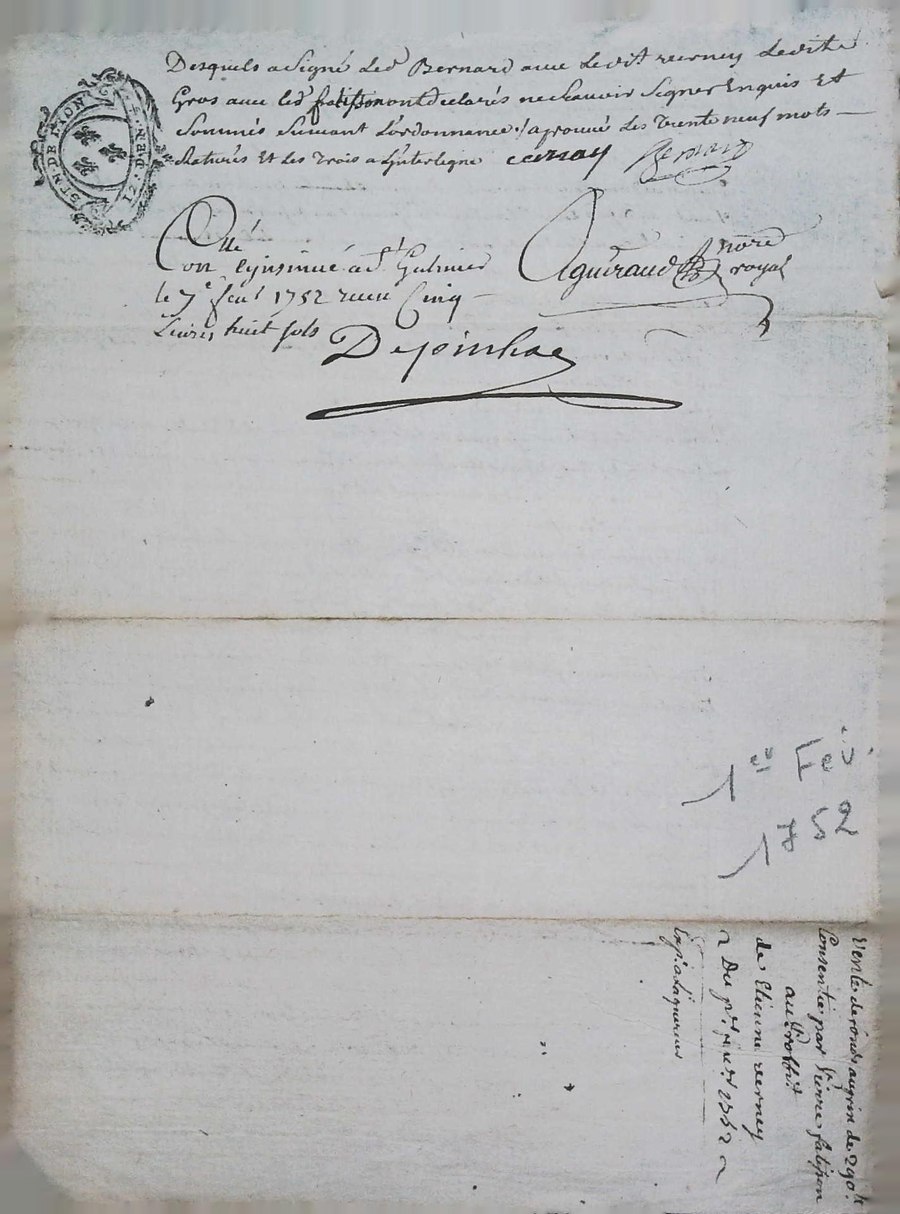 Desquels a Signé led Bernard avec ledit verney ledite
Gros avec led fatisson ont declarés ne scavoir Signer Enquis Et
Sommés Suivant L'ordonnance / aprouvé les trente neuf mots
Raturés Et les trois a L'interligne verney Bernard
GEN. DE LYON
12. DEN.
Con^{lle} et insinué a S^t Galmier
Aguiraud no^{re} royal
le 7^e fev^r 1752 receu Cinq
Livres huit sols
Dejoinhac
1^{er} Fev.
1752
Vente de fonds au prix de 290^{lt}
Consentie par Pierre fatisson
au Proffit
de Etienne verney
Du p^r fev^{er} 1752